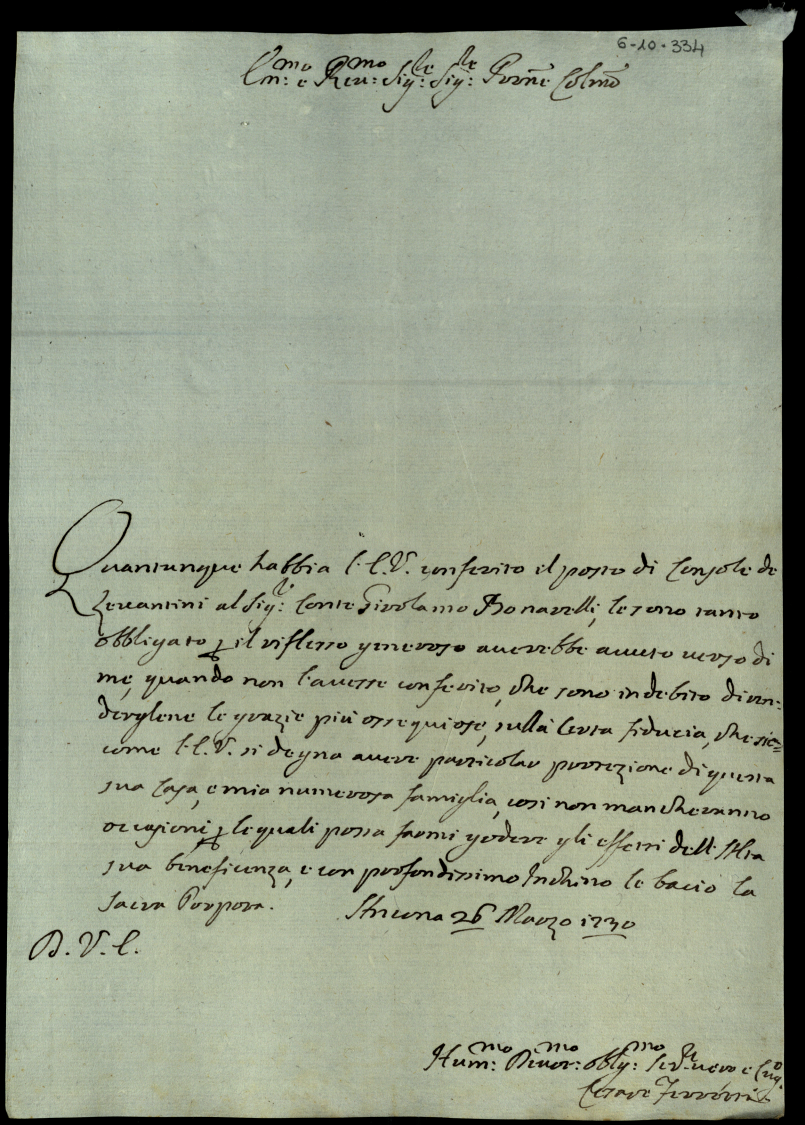 6-10-334
Em:mo e Rev:mo Sig:re Sig:re Prōne Colmō
Quantunque habbia l'E.V. conferito il posto di Console de
Levantini al Sig:r Conte Girolamo Bonarelli, le sono tanto
obbligato p il riflesso generoso averebbe avuto verso di
me, quando non l'avesse conferito, che sono in debito di ren-
derglene le grazie più ossequiose, sulla certa fiducia, che sic=
come l'E.V. si degna avere particolar protezione di questa
sua Casa, e mia numerosa famiglia, così non mancheranno
occasioni, p le quali possa farmi godere gli effetti dell'Alta
sua beneficenza, e con profondissimo Inchino le bacio la
Sacra Porpora. Ancona 26 Marzo 1730
D. V. E.
Hum:mo Devot:mo Obblg:mo Ser:re vero e
Cesare